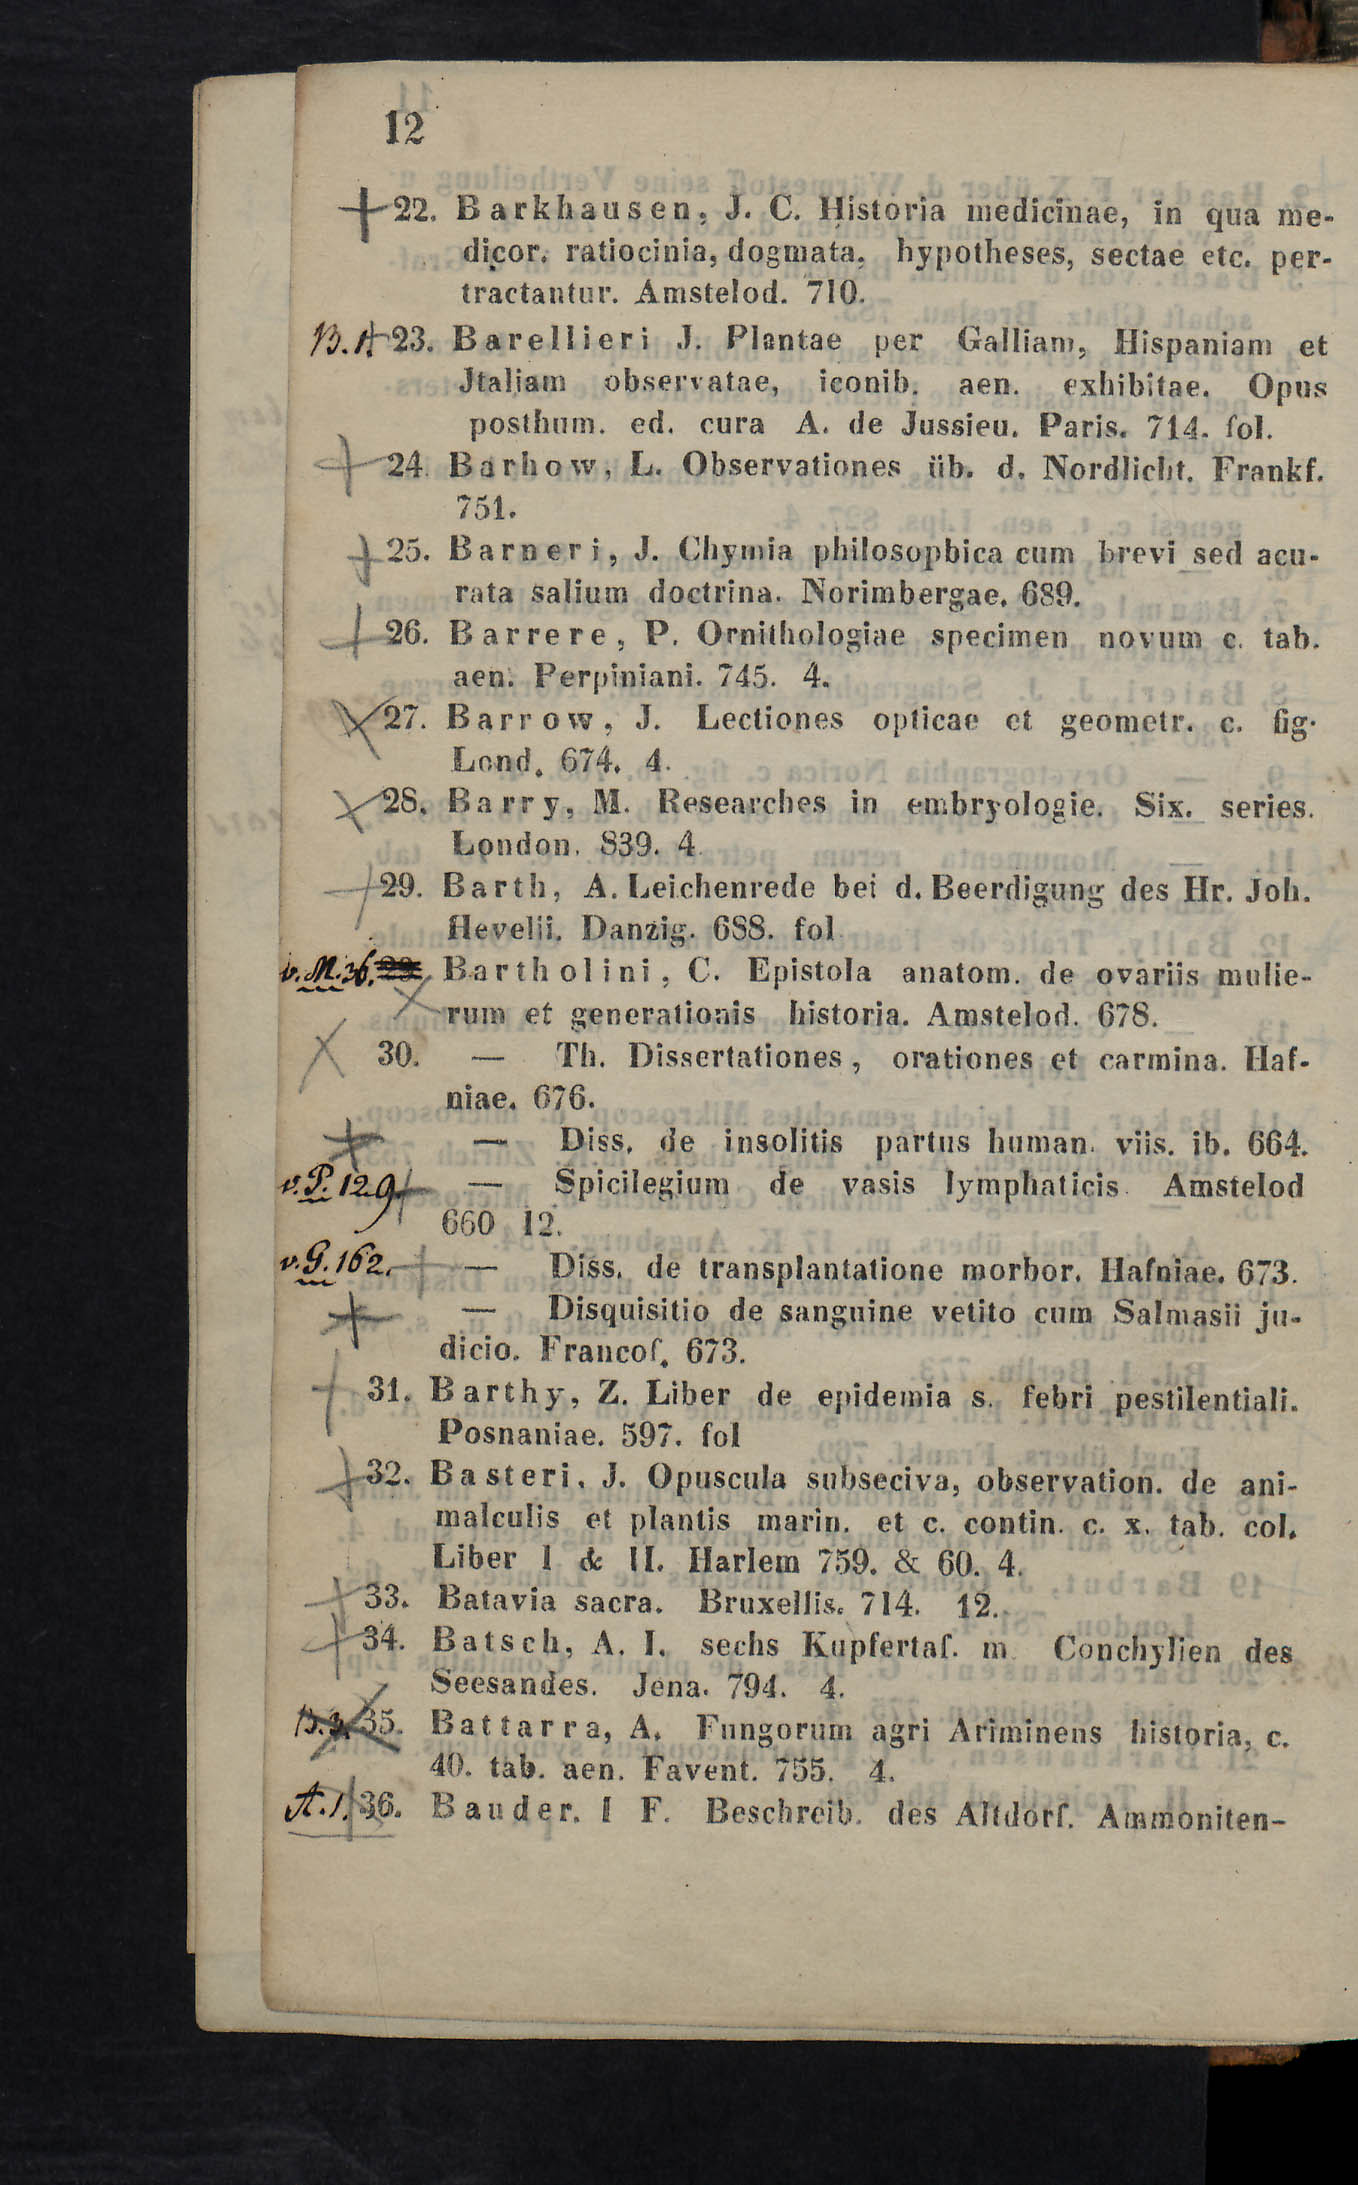 12
22. Barkhausen, J. C. Historia medicinae, in qua me-
dicor. ratiocinia, dogmata, hypotheses, sectae etc. per-
tractantur. Amstelod. 710.
23. Barellieri J. Plantae per Galliam, Hispaniam et
Jtaliam observatae, iconib. aen. exhibitae. Opus
posthum. ed. cura A. de Jussieu. Paris. 714. fol.
24. Barhow, L. Observationes üb. d. Nordlicht. Frankf.
751.
25. Barneri, J. Chymia philosophica cum brevi sed acu-
rata salium doctrina. Norimbergae. 689.
26. Barrere, P. Ornithologiae specimen novum c. tab.
aen. Perpiniani. 745. 4.
27. Barrow, J. Lectiones opticae et geometr. c. fig.
Lond. 674. 4.
28. Barry, M. Researches in embryologie. Six. series.
London. 839. 4.
29. Barth, A. Leichenrede bei d. Beerdigung des Hr. Joh.
Hevelii. Danzig. 688. fol
v. M. 36. Bartholini, C. Epistola anatom. de ovariis mulie-
rum et generationis historia. Amstelod. 678.
30. — Th. Dissertationes, orationes et carmina. Haf-
niae. 676.
— Diss. de insolitis partus human. viis. ib. 664.
v. P. 129. — Spicilegium de vasis lymphaticis Amstelod
660 12.
v. G. 162. — Diss. de transplantatione morbor. Hafniae. 673.
— Disquisitio de sanguine vetito cum Salmasii ju-
dicio. Francof. 673.
31. Barthy, Z. Liber de epidemia s. febri pestilentiali.
Posnaniae. 597. fol
32. Basteri, J. Opuscula subseciva, observation. de ani-
malculis et plantis marin. et c. contin. c. x. tab. col.
Liber I & II. Harlem 759. & 60. 4.
33. Batavia sacra. Bruxellis. 714. 12.
34. Batsch, A. I. sechs Kupfertaf. m Conchylien des
Seesandes. Jena. 794. 4.
35. Battarra, A. Fungorum agri Ariminens historia, c.
40. tab. aen. Favent. 755. 4.
A. 1. 36. Bauder. I F. Beschreib. des Altdorf. Ammoniten-